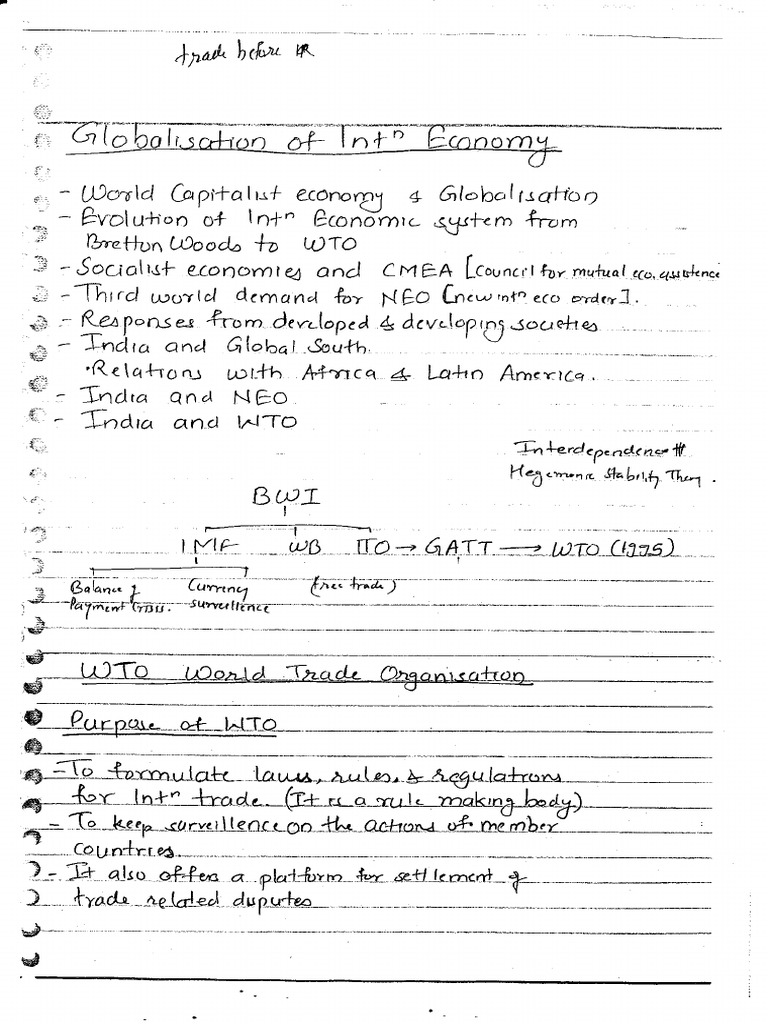 trade before IR
Globalisation of Intⁿ Economy
- World Capitalist economy & Globalisation
- Evolution of Intⁿ Economic system from
Bretton Woods to WTO
- Socialist economies and CMEA [Council for mutual eco. assistence
- Third world demand for NEO [new intⁿ eco order].
- Responses from developed & developing societies
- India and Global South.
• Relations with Africa & Latin America.
- India and NEO
- India and WTO
Interdependence
Hegemonic Stability Theory.
BWI
IMF WB ITO → GATT → WTO (1995)
Balance of Currency (free trade)
Payment Crisis. surveillence
WTO World Trade Organisation
Purpose of WTO
- To formulate laws, rules, & regulations
for Intⁿ trade. (It is a rule making body)
- To keep surveillence on the actions of member
countries.
- It also offers a platform for settlement of
trade related disputes